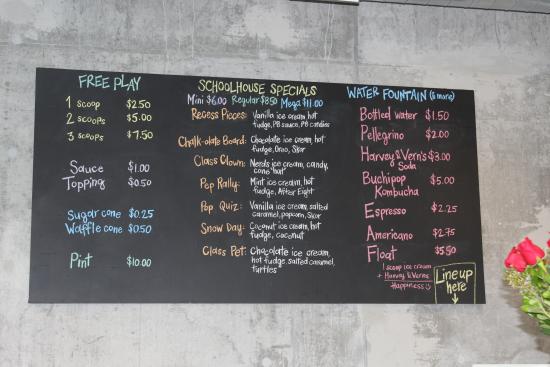 FREE PLAY
1 scoop $2.50
2 scoops $5.00
3 scoops $7.50
Sauce $1.00
Topping $0.50
Sugar cone $0.25
Waffle cone $0.50
Pint $10.00
SCHOOLHOUSE SPECIALS
Mini $6.00 Regular $8.50 Mega $11.00
Recess Pieces: Vanilla ice cream, hot
fudge, PB sauce, PB candies
Chalk-olate Board: Chocolate ice cream, hot
fudge, Oreo, Skor
Class Clown: Nerds ice cream, candy,
cone hat
Pep Rally: Mint ice cream, hot
fudge, After Eight
Pop Quiz: Vanilla ice cream, salted
caramel, popcorn, Skor
Snow Day: Coconut ice cream, hot
fudge, coconut
Class Pet: Chocolate ice cream,
hot fudge, salted caramel,
turtles
WATER FOUNTAIN (& more)
Bottled water $1.50
Pellegrino $2.00
Harvey & Vern's $3.00
Soda
Buchipop $5.00
Kombucha
Espresso $2.25
Americano $2.75
Float $5.50
1 scoop ice cream
+ Harvey & Verns
Happiness
Line up
here